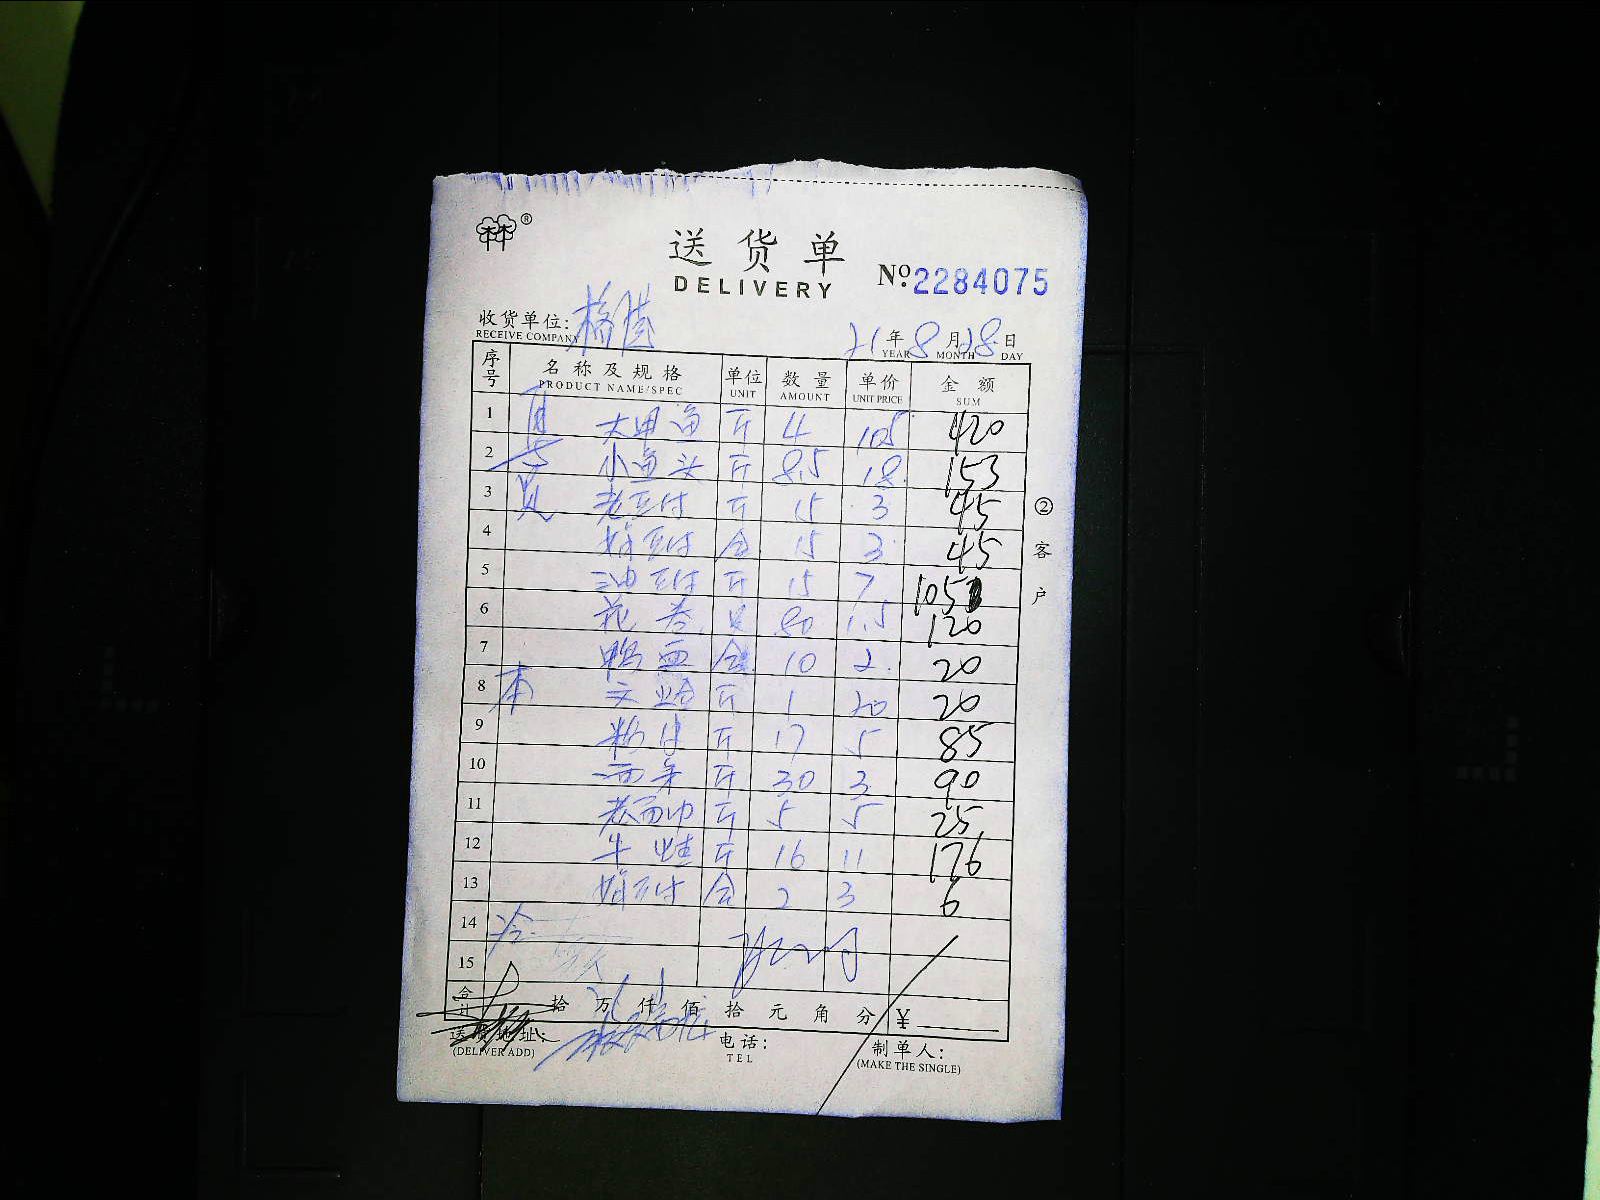 ®
送货单
DELIVERY
No:2284075
收货单位:
RECEIVE COMPANY
21年8月28日
YEAR MONTH DAY
序号 名称及规格 单位 数量 单价 金额
PRODUCT NAME/SPEC UNIT AMOUNT UNIT PRICE SUM
1 大甲鱼 斤 4 105 420
2 小鱼头 斤 8.5 18 153
3 老豆付 斤 15 3 45
4 豆付 合 15 3 45
5 油豆付 斤 15 7 105
6 花卷 只 80 1.5 120
7 鸭血 合 10 2 20
8 本 文蛤 斤 1 20 20
9 斤 17 5 85
10 面条 斤 30 3 90
11 斤 5 5 25
12 牛蛙 斤 16 11 176
13 豆付 合 2 3 6
14 冷
15
合计 拾 万 仟 佰 拾 元 角 分 ¥
送货地址:
(DELIVER ADD)
电话:
TEL
制单人:
(MAKE THE SINGLE)
②客户